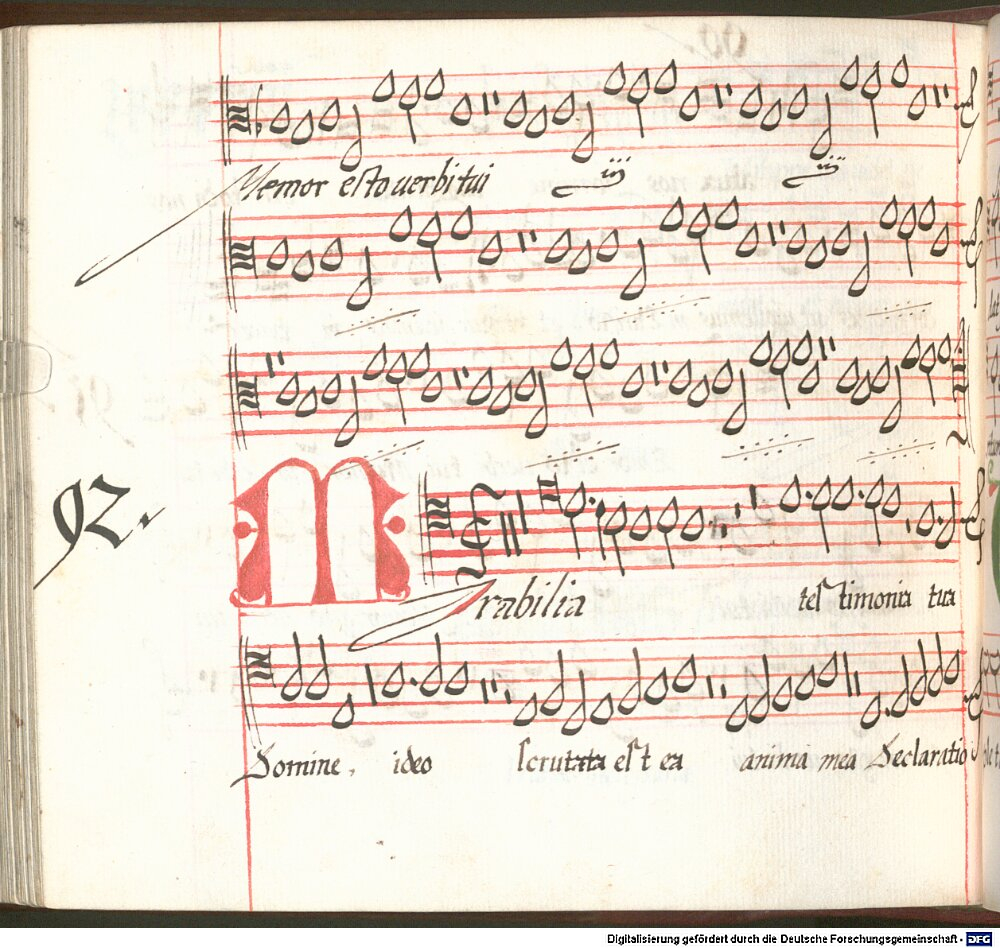 Memor esto verbi tui iij iij
92.
Mirabilia testimonia tua
Domine, ideo scrutata est ea anima mea Declaratio
Digitalisierung gefördert durch die Deutsche Forschungsgemeinschaft - DFG